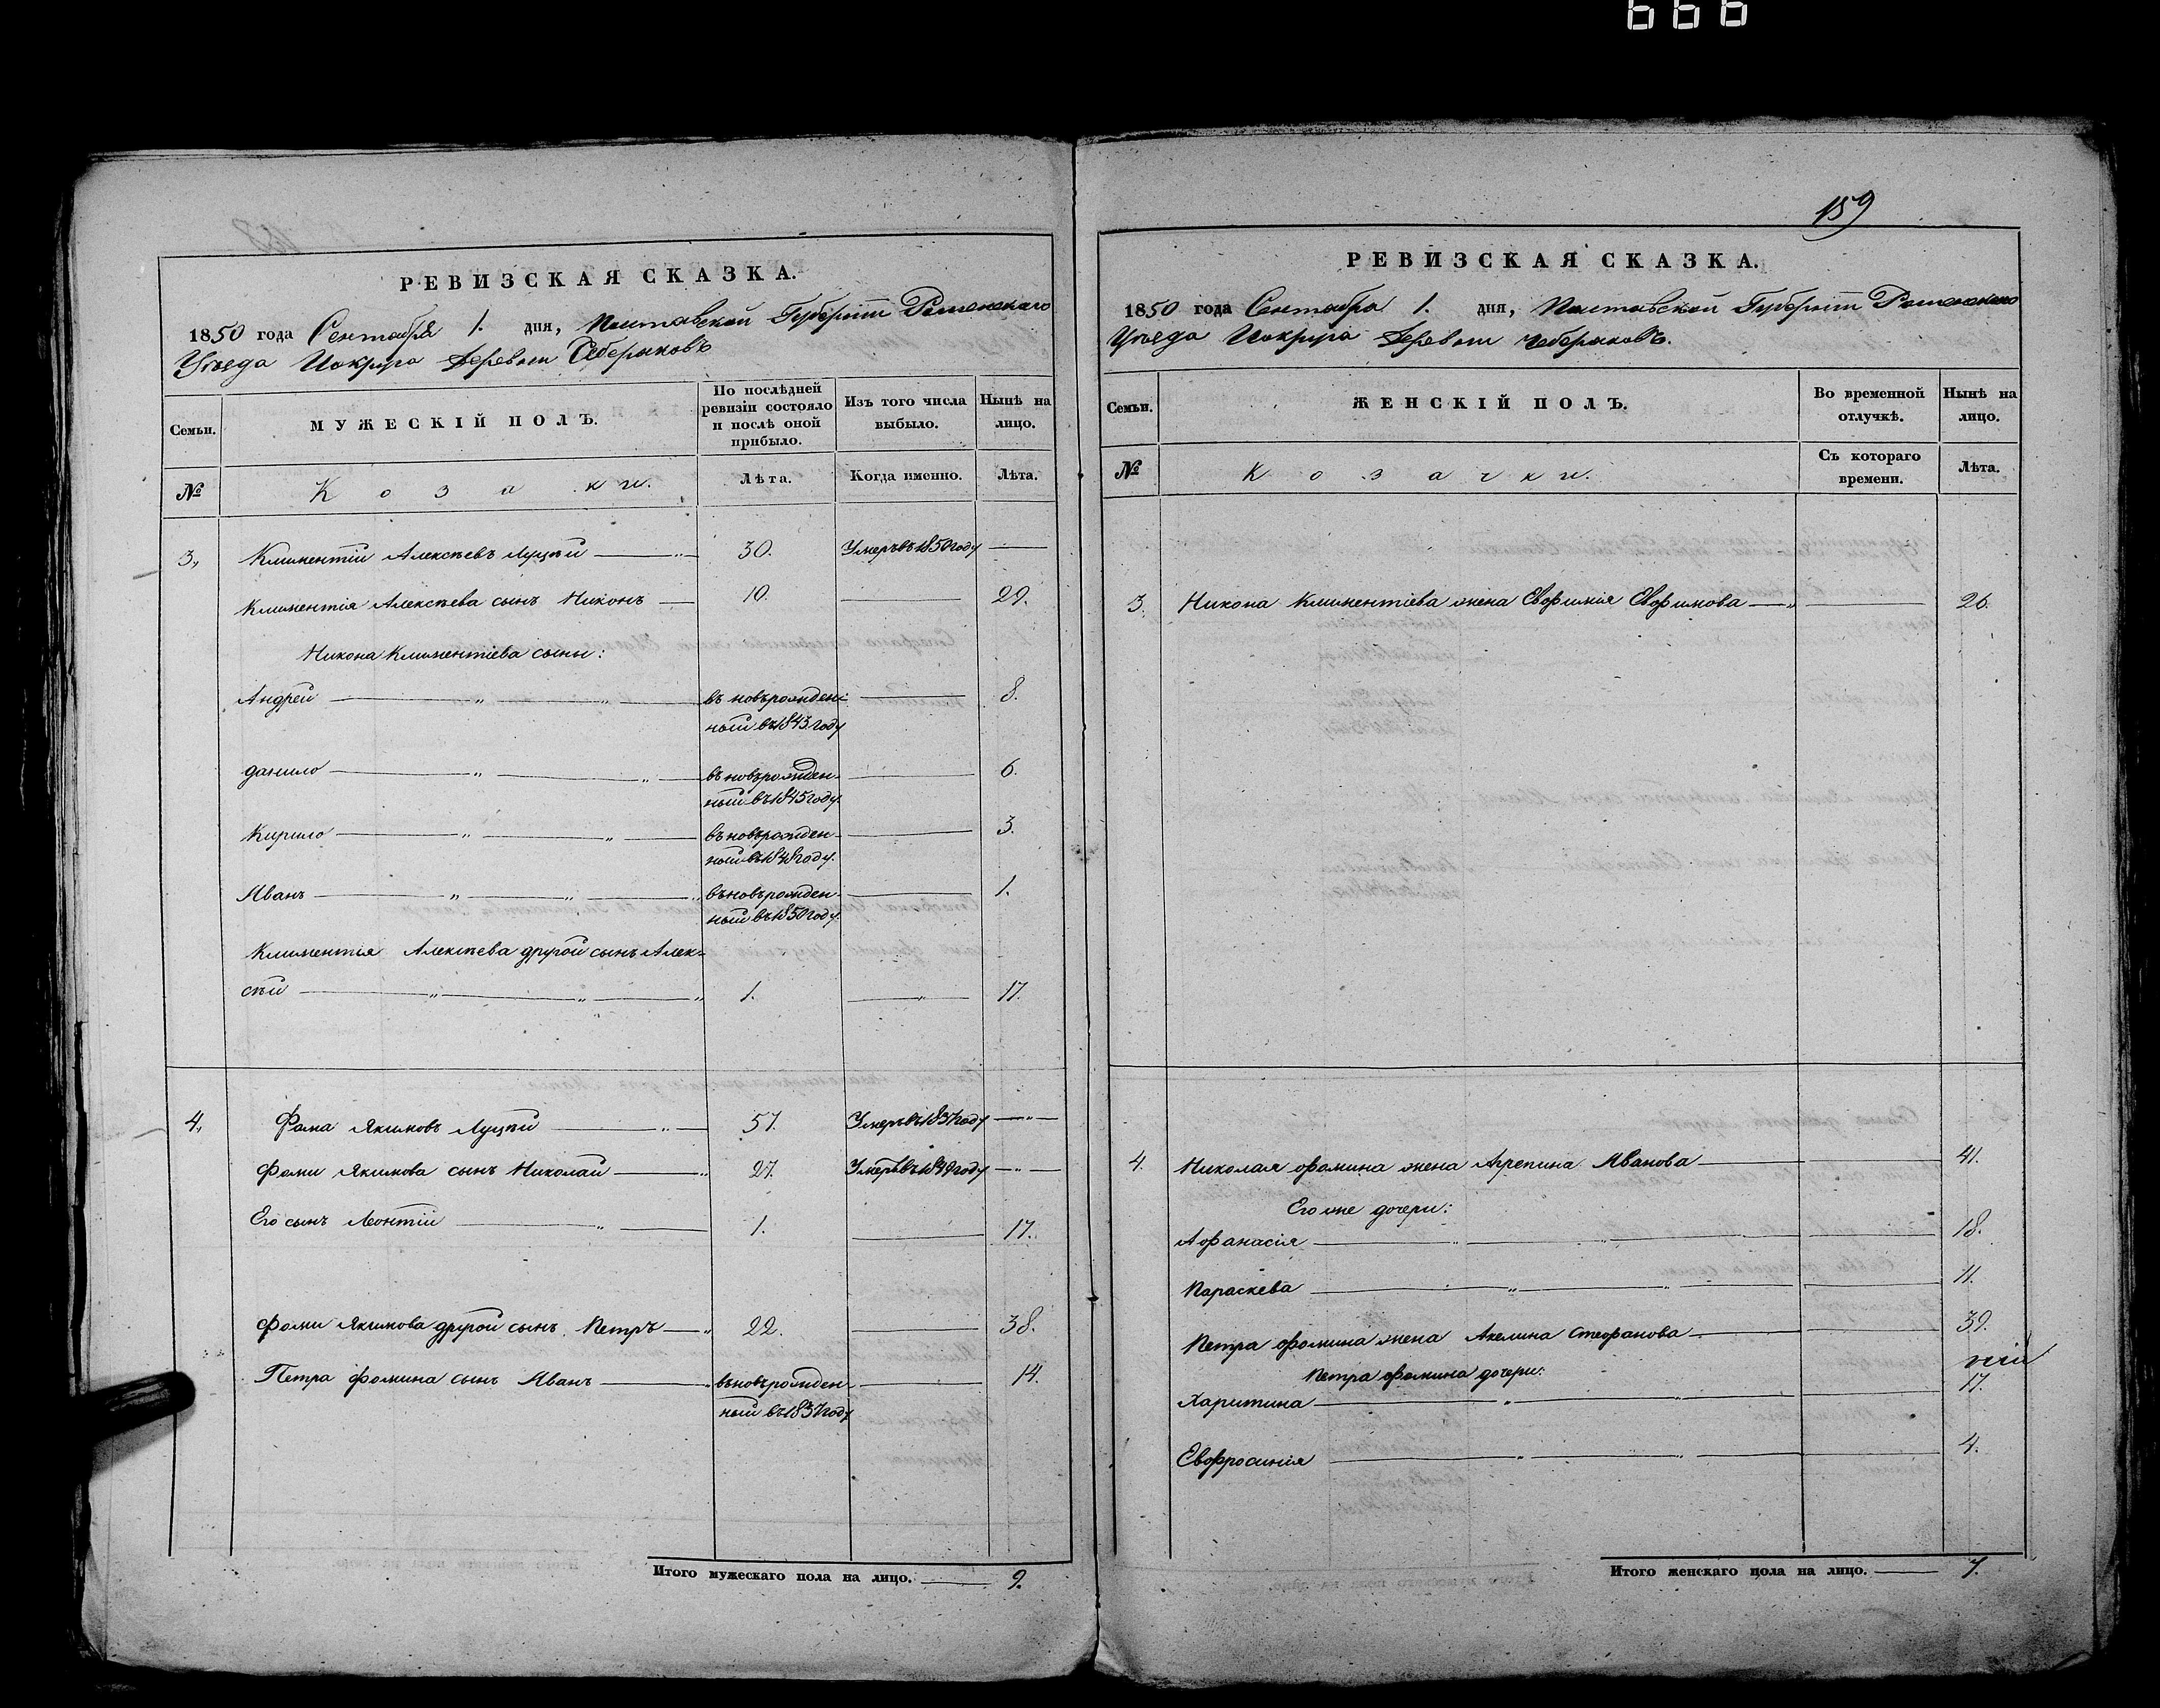 666
РЕВИЗСКАЯ СКАЗКА.
1850 года Сентября 1. дня, Полтавской Губернiи Роменскаго
Уѣзда Иокруга Деревни Чеберяковъ
Семьи.
МУЖЕСКIЙ ПОЛЪ.
По послѣдней ревизiи состояло и послѣ оной прибыло.
Изъ того числа выбыло.
Нынѣ на лицо.
№
Козаки.
Лѣта.
Когда именно.
Лѣта.
3, Климентiй Алексѣевъ Луцкiй 30. Умеръ въ 1850 году
Климентiя Алексѣева сынъ Никонъ 10. 29.
Никона Климентiева сыны:
Андрей въ новърожден- 8.
ный въ 1843 году
данило въ новърожден- 6.
ный въ 1845 году.
Кирило въ новърожден- 3.
ный въ 1848 году.
Иванъ въ новърожден- 1.
ный въ 1850 году.
Климентiя Алексѣева другой сынъ Алек-
сѣй 1. 17.
4, Фома Якимовъ Луцкiй 57. Умеръ въ 1837 году
Фомы Якимова сынъ Николай 27. Умеръ въ 1849 году
Его сынъ Леонтiй 1. 17.
Фомы Якимова другой сынъ Петръ 22. 38.
Петра Фомина сынъ Иванъ въ новърожден- 14.
ный въ 1837 году
Итого мужескаго пола на лицо. 9.
159
РЕВИЗСКАЯ СКАЗКА.
1850 года Сентября 1. дня, Полтавской Губернiи Роменскаго
Уѣзда Иокруга Деревни Чеберяковъ.
Семьи.
ЖЕНСКIЙ ПОЛЪ.
Во временной отлучкѣ.
Нынѣ на лицо.
№
Козачки.
Съ котораго времени.
Лѣта.
3. Никона Климентiева жена Евфимiя Евфимова 26.
4. Николая Фомина жена Агрепина Иванова 41.
Его же дочери:
Афанасiя 18.
Параскева 11.
Петра Фомина жена Акелина Стефанова 39.
Петра Фомина дочери:
Харитина 17.
Евфросинiя 4.
Итого женскаго пола на лицо. 7.